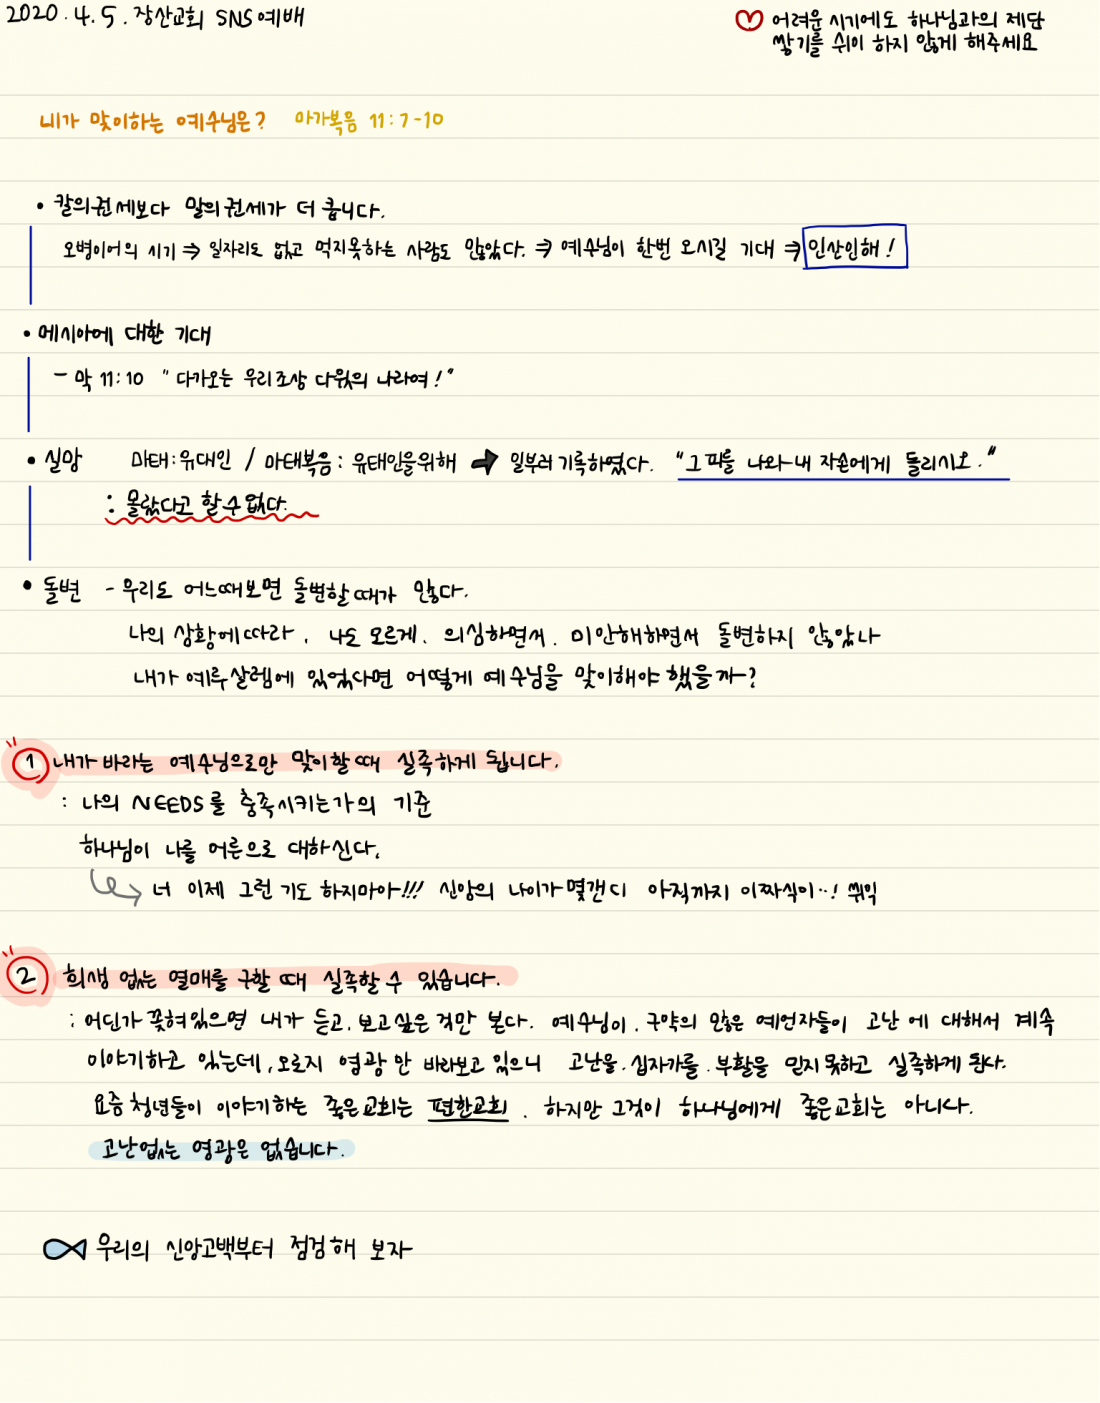 2020.4.5. 장산교회 SNS예배
♡ 어려운 시기에도 하나님과의 제단
쌓기를 쉬이 하지 않게 해주세요
내가 맞이하는 예수님은? 마가복음 11:7-10
• 칼의권세보다 말의권세가 더 큽니다.
오병이어의 시기 ⇒ 일자리도 없고 먹지못하는 사람도 많았다. ⇒ 예수님이 한번 오시길 기대 ⇒ 인산인해!
• 메시아에 대한 기대
- 막 11:10 "다가오는 우리조상 다윗의 나라여!"
• 실망 마태:유대인 / 마태복음: 유태인을위해 → 일부러 기록하였다. "그 피를 나와 내 자손에게 돌리시오."
: 몰랐다고 할수없다.
• 돌변 - 우리도 어느때보면 돌변할때가 많다.
나의 상황에따라, 나도 모르게, 의심하면서, 미안해하면서 돌변하지 않았나
내가 예루살렘에 있었다면 어떻게 예수님을 맞이해야 했을까?
① 내가 바라는 예수님으로만 맞이할때 실족하게 됩니다.
: 나의 NEEDS를 충족시키는가의 기준
하나님이 나를 어른으로 대하신다.
너 이제 그런 기도 하지마아!!! 신앙의 나이가 몇갠디 아직까지 이짜식이..! 쒸익
② 희생 없는 열매를 구할 때 실족할 수 있습니다.
: 어딘가 꽂혀있으면 내가 듣고, 보고싶은 것만 본다. 예수님이, 구약의 많은 예언자들이 고난에 대해서 계속
이야기하고 있는데, 오로지 영광만 바라보고 있으니 고난을, 십자가를, 부활을 믿지못하고 실족하게 된다.
요즘 청년들이 이야기하는 좋은교회는 편한교회. 하지만 그것이 하나님에게 좋은교회는 아니다.
고난없는 영광은 없습니다.
우리의 신앙고백부터 점검해 보자